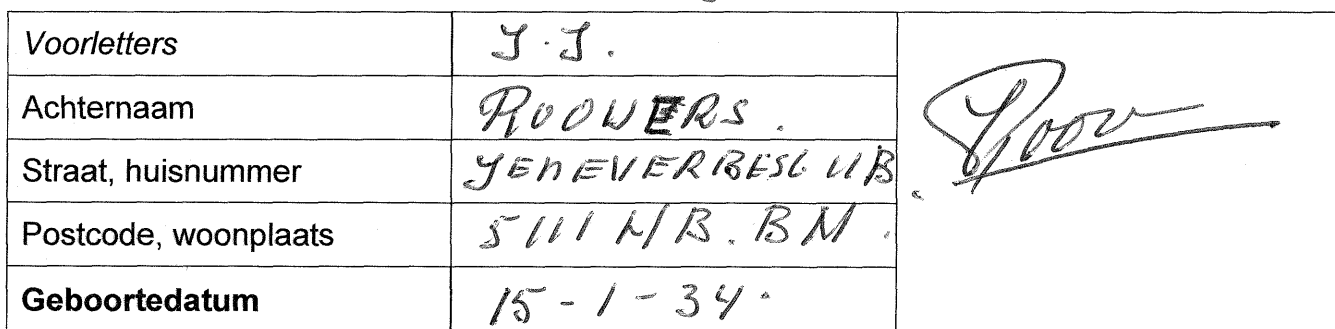 Voorletters J.J.
Achternaam ROOVERS.
Straat, huisnummer JENEVERBESL 11B
Postcode, woonplaats 5111 HB. BM.
Geboortedatum 15-1-34.